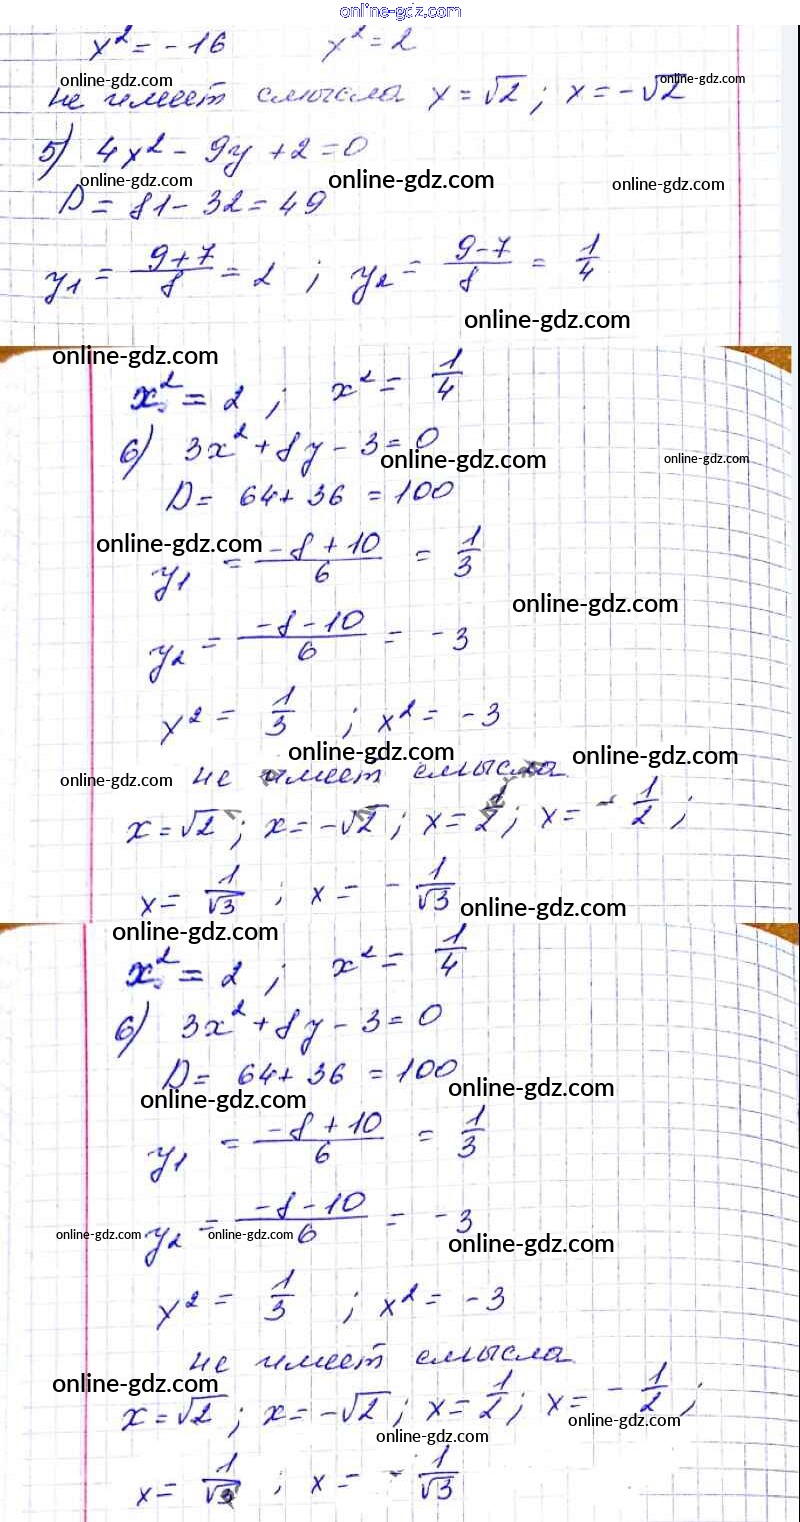 online-gdz.com
x² = -16 x² = 2
online-gdz.com online-gdz.com
не имеет смысла x = √2 ; x = -√2
5) 4x² - 9y + 2 = 0
online-gdz.com online-gdz.com online-gdz.com
D = 81 - 32 = 49
y₁ = (9+7)/8 = 2 ; y₂ = (9-7)/8 = 1/4
online-gdz.com
online-gdz.com
x² = 2 ; x² = 1/4
6) 3x² + 8y - 3 = 0
online-gdz.com online-gdz.com
D = 64 + 36 = 100
online-gdz.com
y₁ = (-8+10)/6 = 1/3
online-gdz.com
y₂ = (-8-10)/6 = -3
x² = 1/3 ; x² = -3
online-gdz.com online-gdz.com
online-gdz.com не имеет смысла
x = √2 ; x = -√2 ; x = 1/2 ; x = -1/2 ;
x = 1/√3 ; x = -1/√3
online-gdz.com
online-gdz.com
x² = 2 ; x² = 1/4
6) 3x² + 8y - 3 = 0
D = 64 + 36 = 100
online-gdz.com online-gdz.com
y₁ = (-8+10)/6 = 1/3
y₂ = (-8-10)/6 = -3
online-gdz.com online-gdz.com online-gdz.com
x² = 1/3 ; x² = -3
не имеет смысла
online-gdz.com
x = √2 ; x = -√2 ; x = 1/2 ; x = -1/2 ;
online-gdz.com online-gdz.com
x = 1/√3 ; x = -1/√3